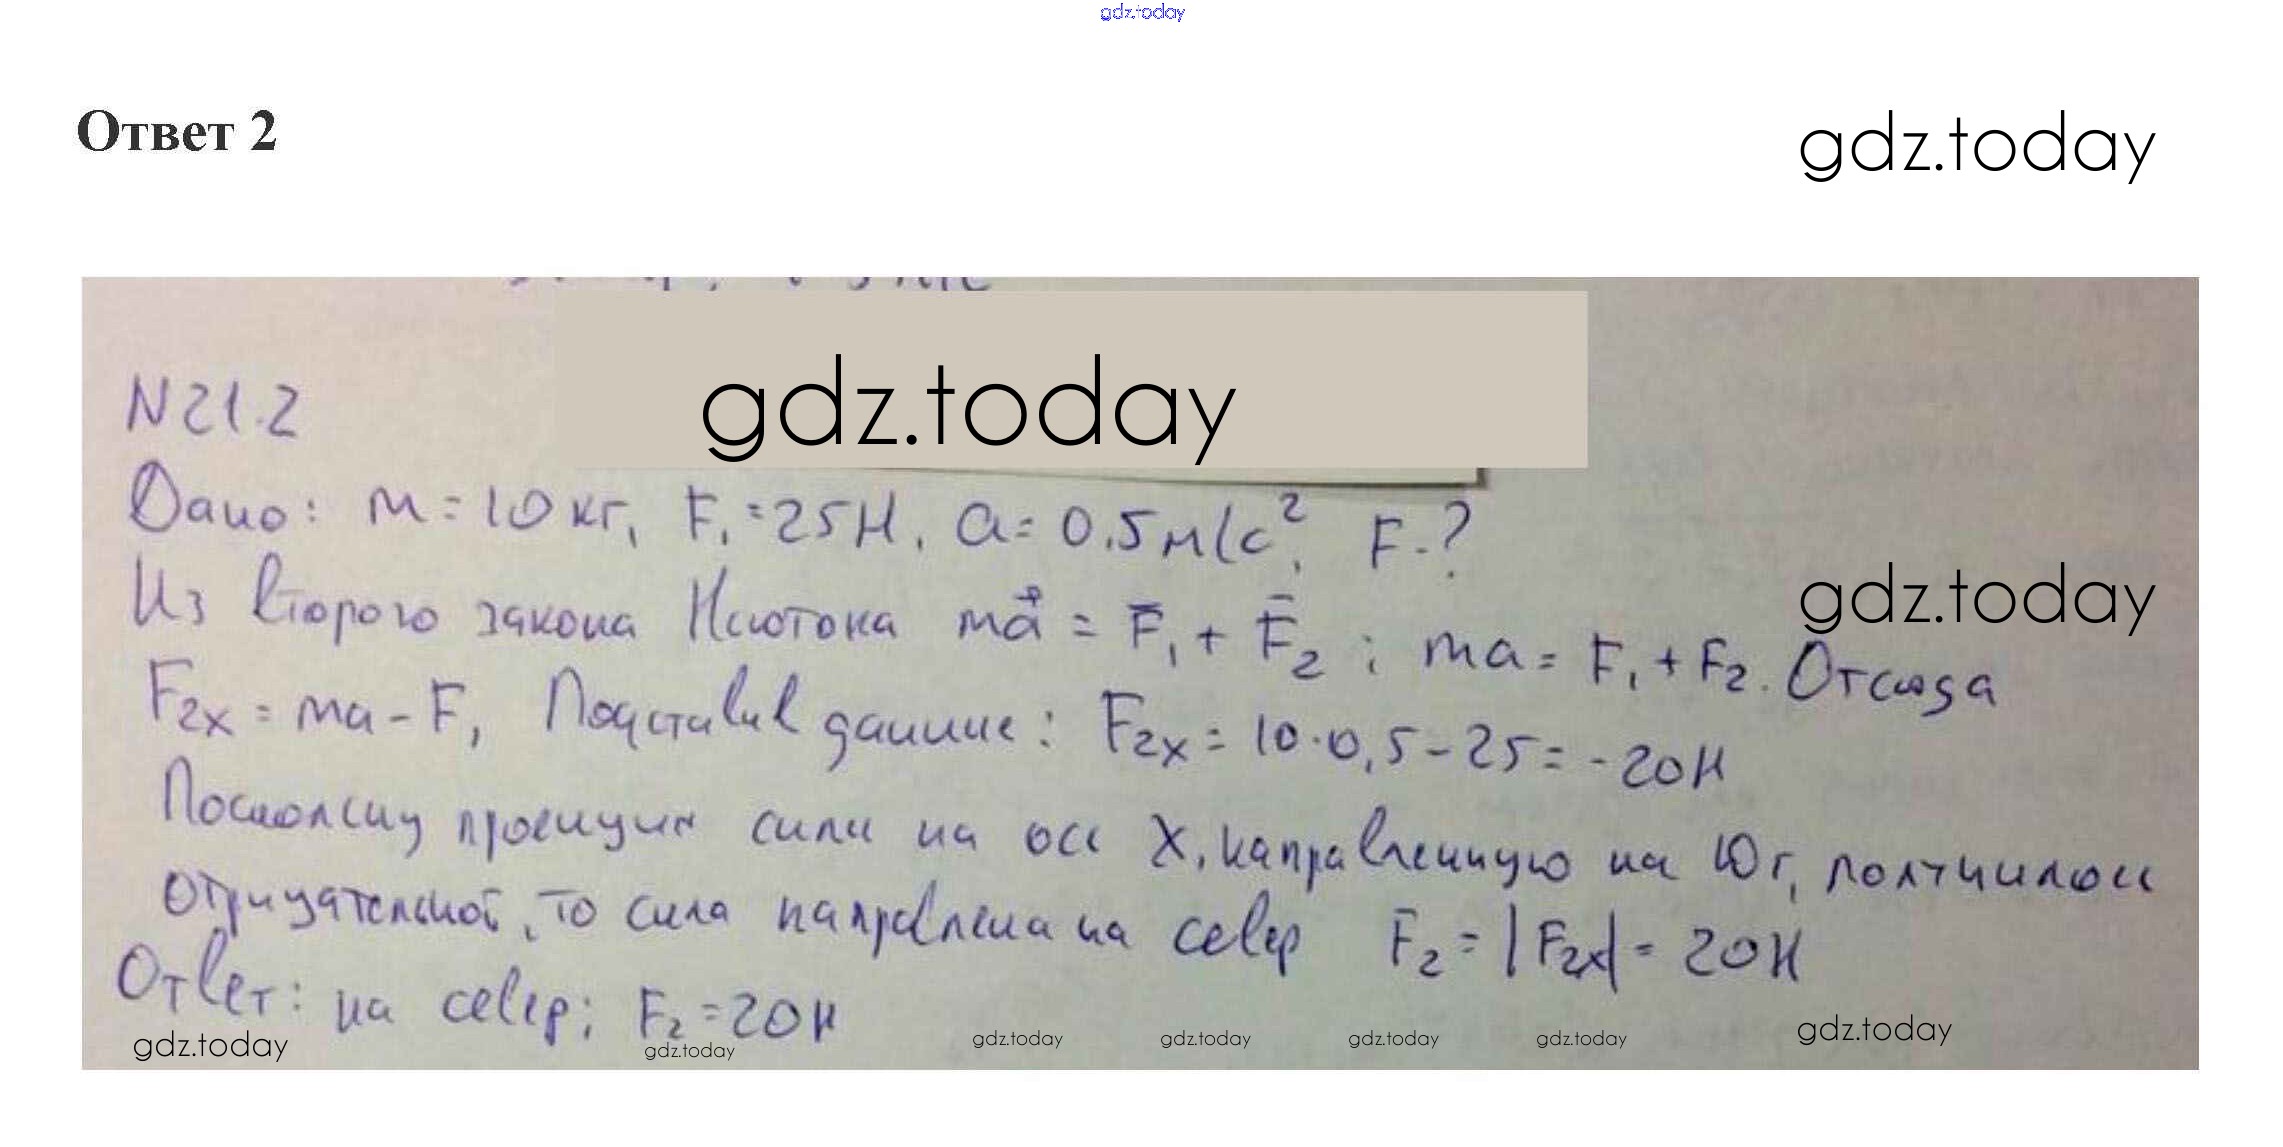 gdz.today
Ответ 2
gdz.today
gdz.today
N 21.2
Дано: m = 10 кг, F₁ = 25 Н, a = 0.5 м/с², F - ?
Из второго закона Ньютона ma⃗ = F̄₁ + F̄₂ ; ma = F₁ + F₂. Отсюда
gdz.today
F₂ₓ = ma - F₁ Подставив данные: F₂ₓ = 10·0,5 - 25 = -20 Н
Поскольку проекция силы на ось X, направленную на Юг, получилось
отрицательной, то сила направлена на север F₂ = |F₂ₓ| = 20 Н
Ответ: на север; F₂ = 20 Н
gdz.today gdz.today gdz.today gdz.today gdz.today gdz.today gdz.today